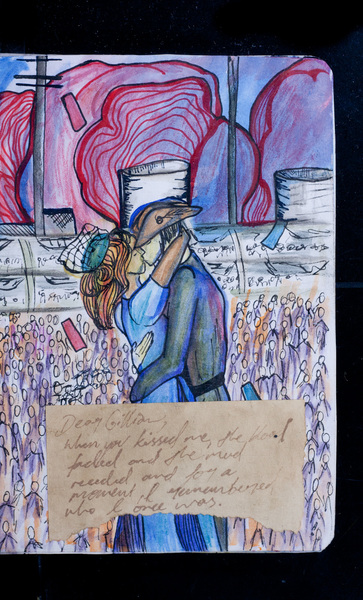 Dear Gillian,
When you kissed me, the blood
faded and the mud
receded, and for a
moment I remembered
who I once was.